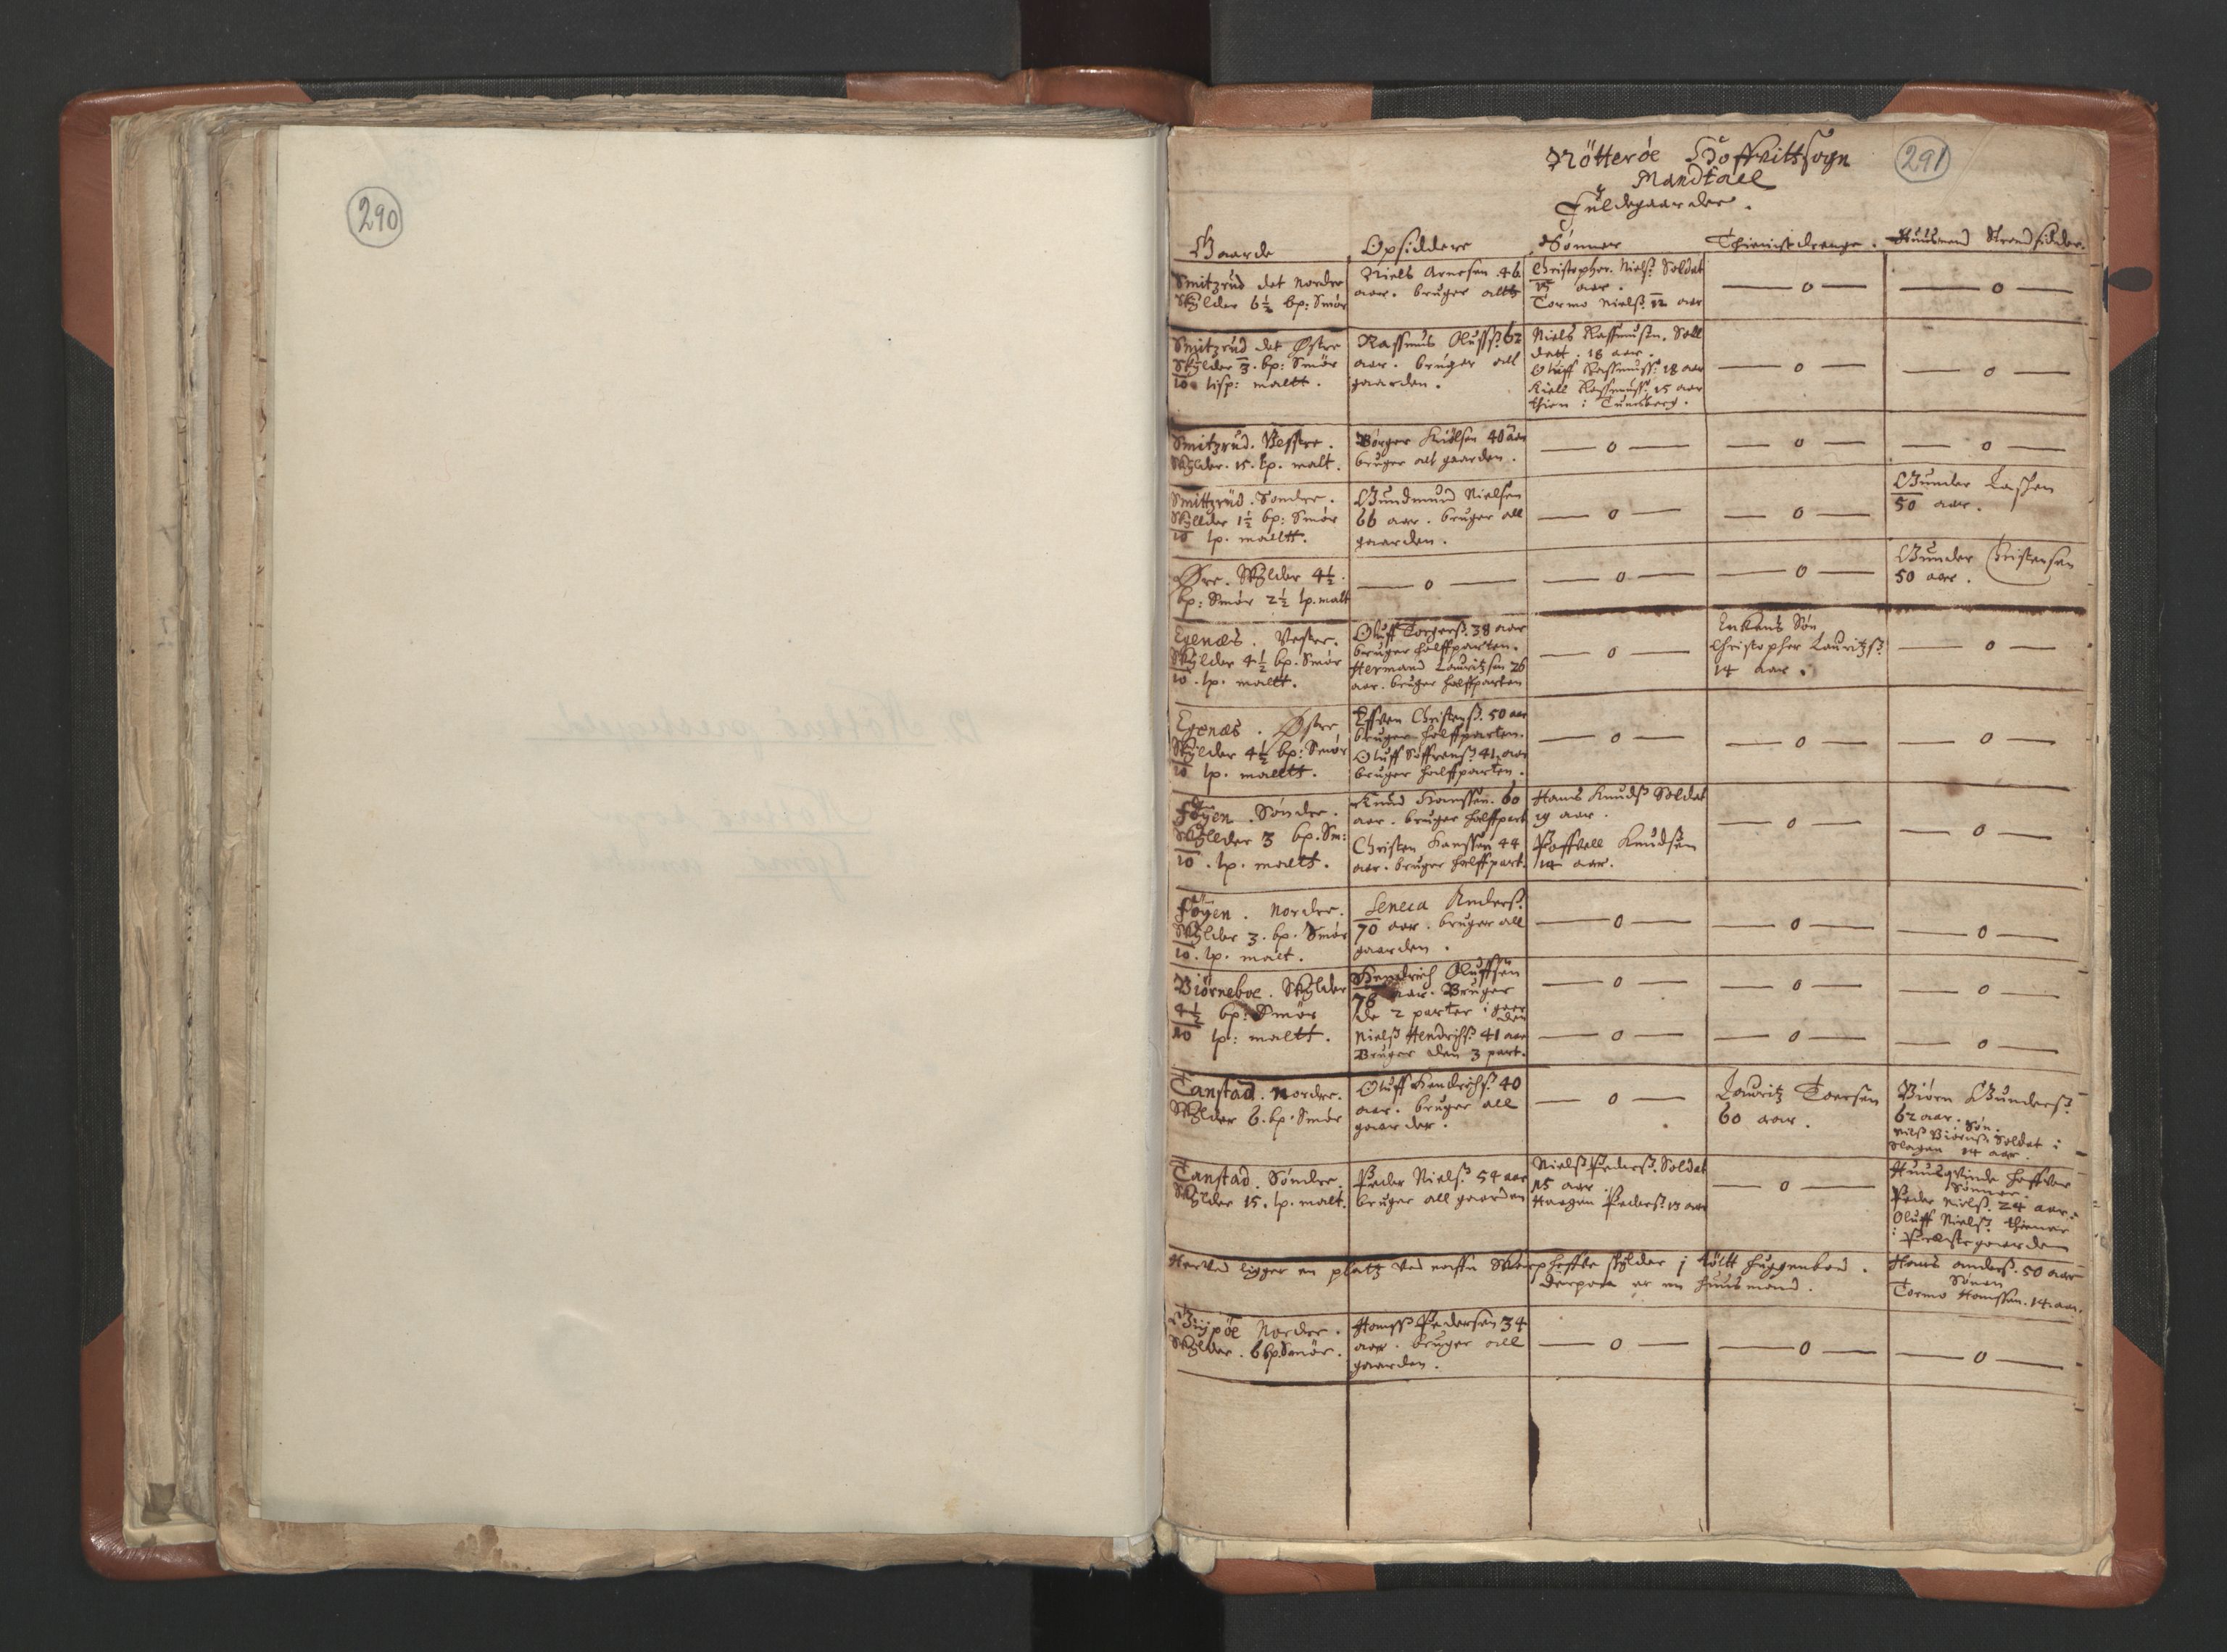 290
291
Nötteröe Hoffvitt sogn
Mandtael
Fuldegaarder.
Gaarde
Opsiddere
Sønner
Thienistdrenge.
Huusmend Strandsidder.
Smitzrud det Norder
Skylder 6½ bp: Smør
Niels Arnesen 46
aar. bruger altt
Christopher Nielsß Soldat
15 aar.
Tormo Nielsß 12 aar
— 0 —
— 0 —
Smitzrud det Østre
Skylder 3. bp: Smør
10 lisp: maltt.
Rasmus Olufsß 62
aar. bruger all
gaarden.
Niels Rasmusen. Soll
datt. 18 aar.
Oluff Rasmusß 18 aar
Kield Rasmusß 15 aar
thien i Tunsberg.
— 0 —
— 0 —
Smitzrud. Vestre.
Skylder. 15. lp. malt.
Børger Kiølsen 40 aar
bruger all gaarden.
— 0 —
— 0 —
— 0 —
Smittzrud. Sondre.
Skyllder 1½ bp: Smør
10 lp. malltt.
Gundmund Nielsen
66 aar. bruger all
gaarden.
— 0 —
— 0 —
Gunder Lassen
50 aar.
Øre. Skylder 4½.
bp: Smør 2½ lp. malt
— 0 —
— 0 —
— 0 —
Gunder Christensen
50 aar.
Egenæs. Vester.
Skylder 4½ bp. Smør
10. lp. malltt.
Oluff Torgersß. 38 aar
bruger halffparten.
Hermand Lauritzsen 26
aar. bruger halffparten
— 0 —
Enkens Søn
Christopher Lauritzsß
14 aar.
— 0 —
Egenæs. Østre
Skylder 4½ bp: Smør
10 lp. malltt.
Effven Christensß. 50 aar
bruger halffparten.
Oluff Søffrensß 41. aar
bruger halffparten.
— 0 —
— 0 —
— 0 —
Føyen. Søndre.
Skylder 3 bp. Sm:
10. lp. maltt.
Knud Hanssen. 60
aar. bruger halffpart
Christen Hanssen 44
aar. bruger halffpart.
Hans Knudsß Soldat
19 aar.
Poffvell Knudsen
14 aar.
— 0 —
— 0 —
Føyen. Nordre.
Skylder 3. bp. Smør
10. lp. malt.
Seneca Andersß.
70 aar. bruger all
gaarden.
— 0 —
— 0 —
— 0 —
Biørneboe. Skylder
4½ bp: Smør
10 lp: maltt.
Hendrich Oluffsen
76 aar. Bruger
de 2 parter i gaar
den
Nielsß Hendrichsß 41 aar
Bruger den 3 part.
— 0 —
— 0 —
— 0 —
— 0 —
— 0 —
— 0 —
Tanstad. Nordre.
Skylder 6. bp. Smør
Oluff Hendrichsß 40
aar. bruger all
gaarden.
— 0 —
Lauritz Toersen
60 aar.
Biørn Gundersß
62 aar. Søn.
Nilsß Biørnsß Soldat i
Slagen 14 aar.
Tanstad. Søndre.
Skylder 15. lp. malt.
Peder Nielsß 54 aar
bruger all gaarden
Nielsß Pedersß. Soldat
15 aar.
Haagen Pedersß 13 aar
— 0 —
Huusqvinde haffver
Sønner.
Peder Nielsß 24 aar.
Oluff Nielsß thiener
i Præstegaarden
Herved ligger en platz ved naffn Skarphaffve skylder j kölltt huggenbord.
derpaa er en huusmand.
Hans Andersß. 50 aar
Sønen
Tormo Hanssen. 14. aar.
Gipöe Nordre.
Skylder. 6 bp. Smør.
Hanssß Pedersen 34
aar. bruger all
gaarden.
— 0 —
— 0 —
— 0 —